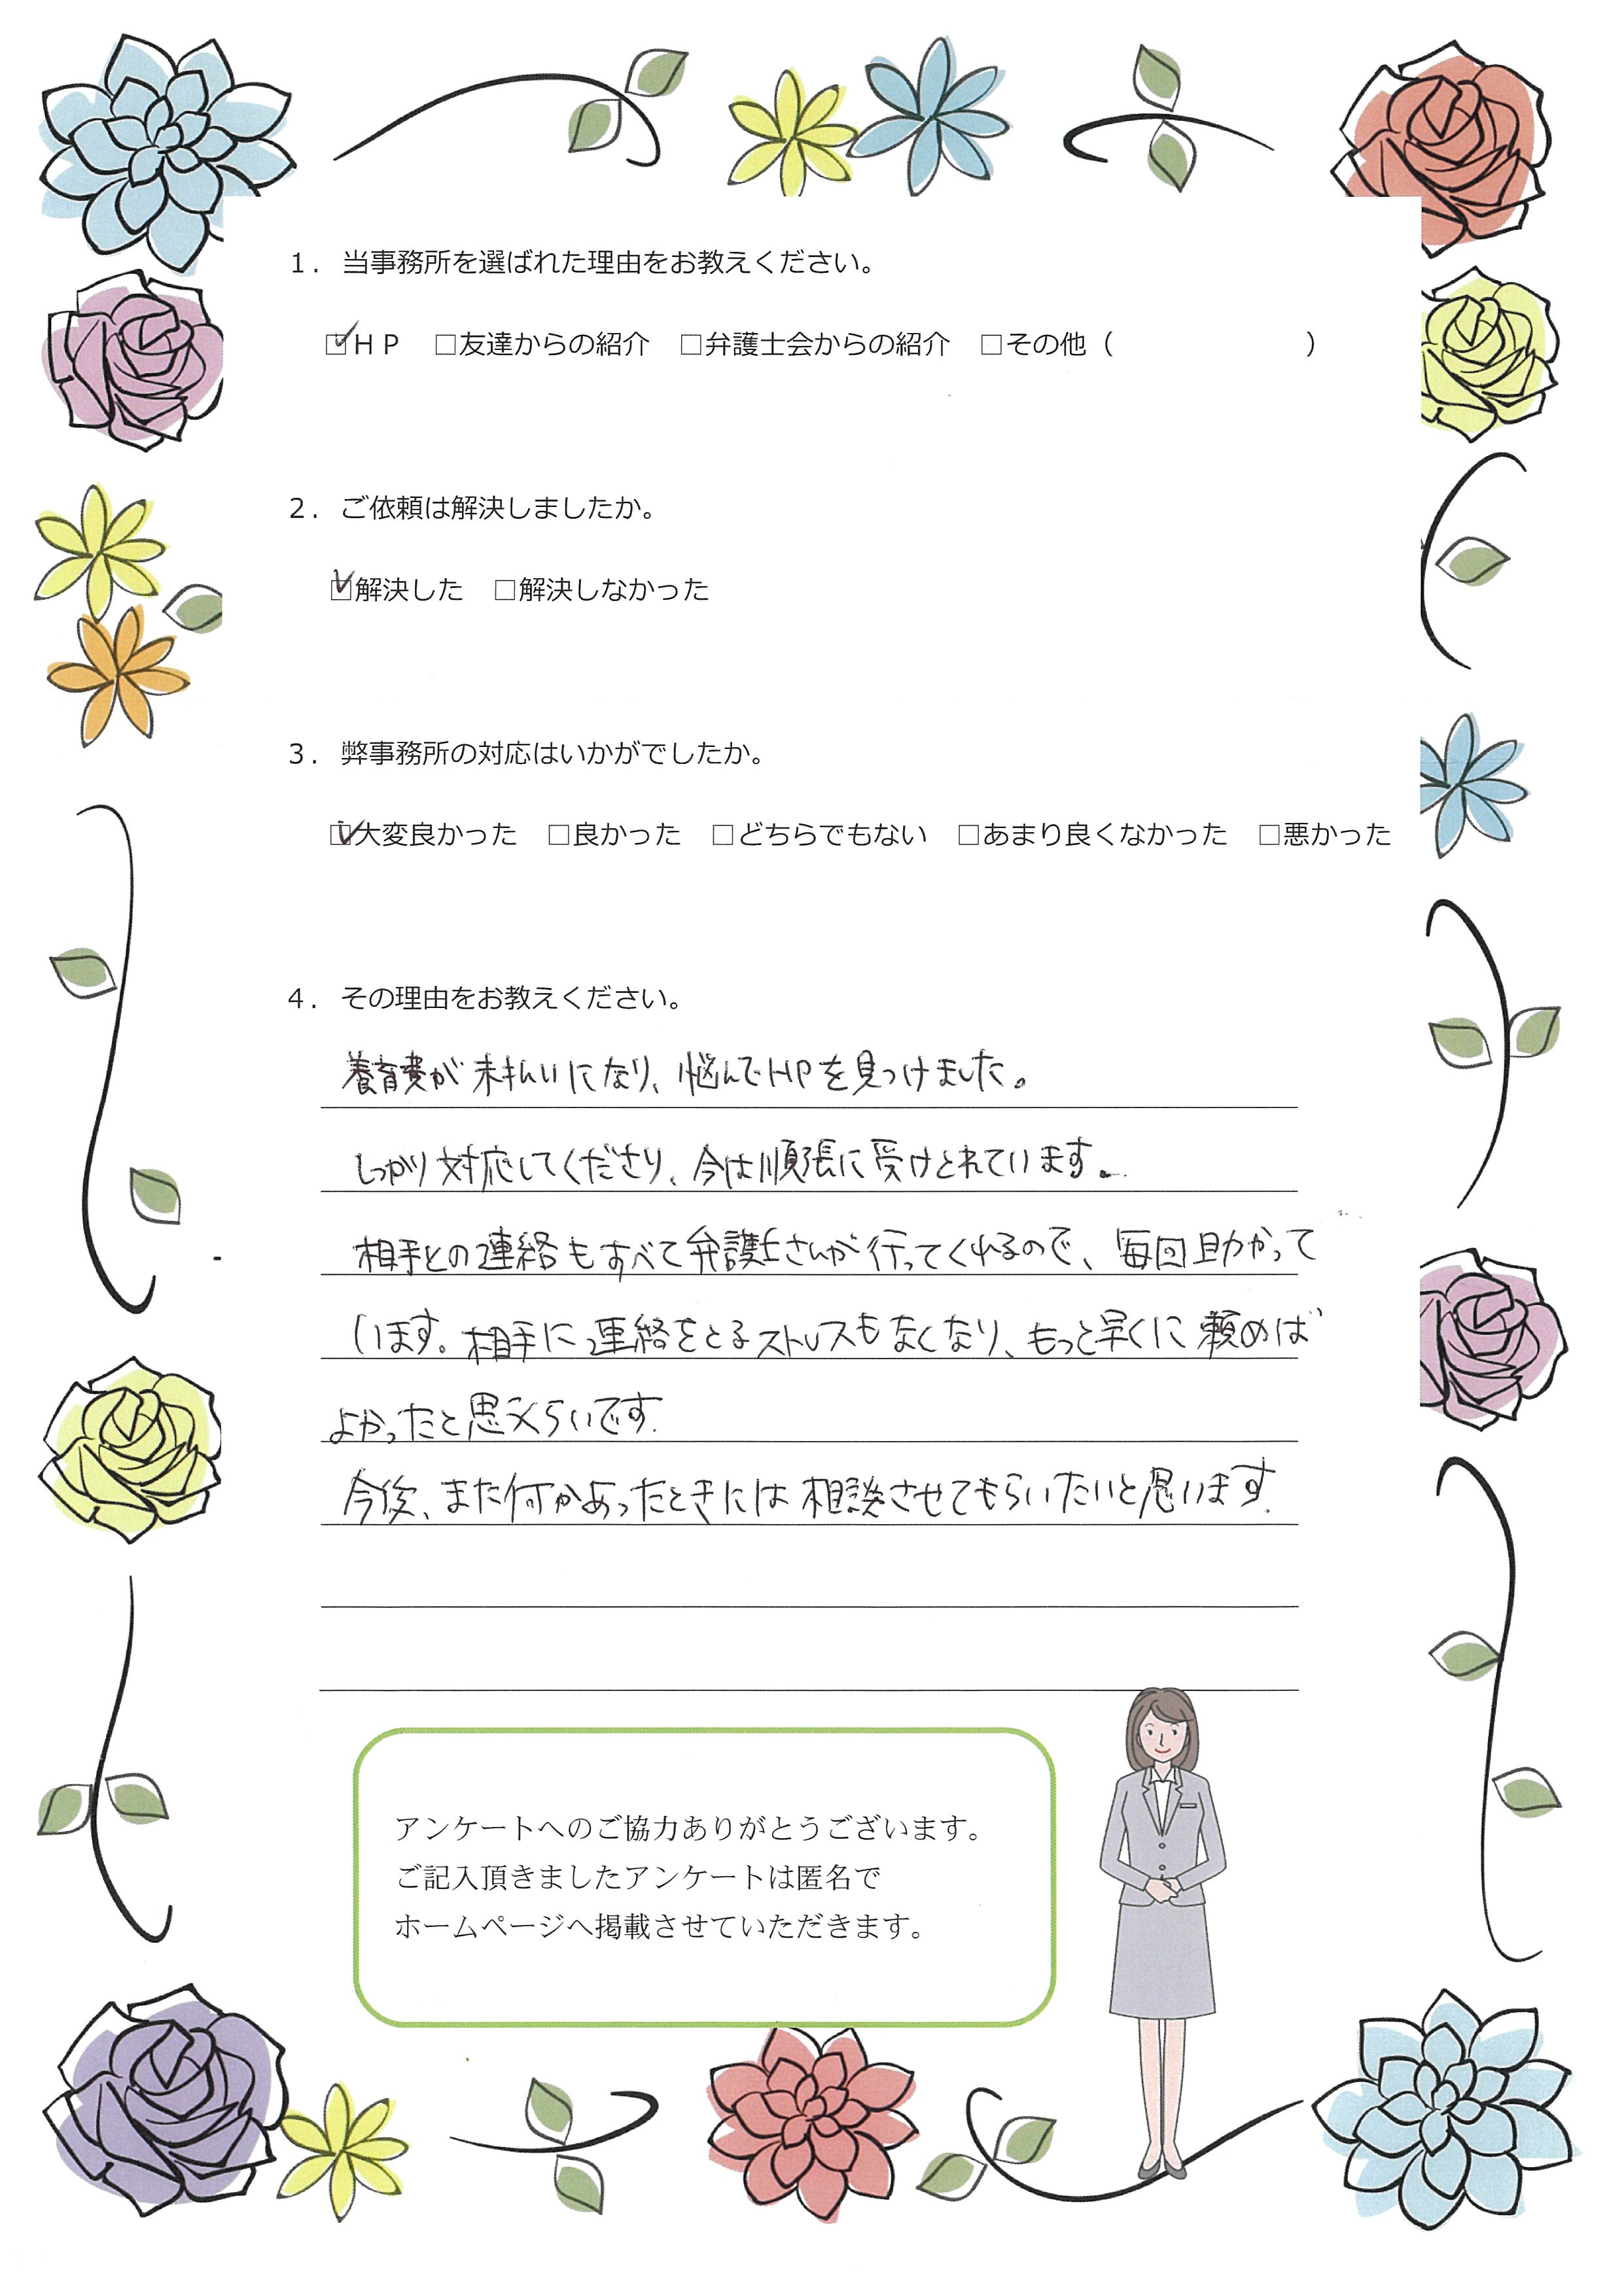 1．当事務所を選ばれた理由をお教えください。
☑ＨＰ　□友達からの紹介　□弁護士会からの紹介　□その他（　　　　　　　）
2．ご依頼は解決しましたか。
☑解決した　□解決しなかった
3．弊事務所の対応はいかがでしたか。
☑大変良かった　□良かった　□どちらでもない　□あまり良くなかった　□悪かった
4．その理由をお教えください。
養育費が未払いになり、悩んでHPを見つけました。
しっかり対応してくださり、今は順張に受けとれています。
相手との連絡もすべて弁護士さんが行ってくれるので、毎回助かって
います。相手に連絡をとるストレスもなくなり、もっと早くに頼めば
よかったと思うくらいです。
今後、また何かあったときには相談させてもらいたいと思います。
アンケートへのご協力ありがとうございます。
ご記入頂きましたアンケートは匿名で
ホームページへ掲載させていただきます。